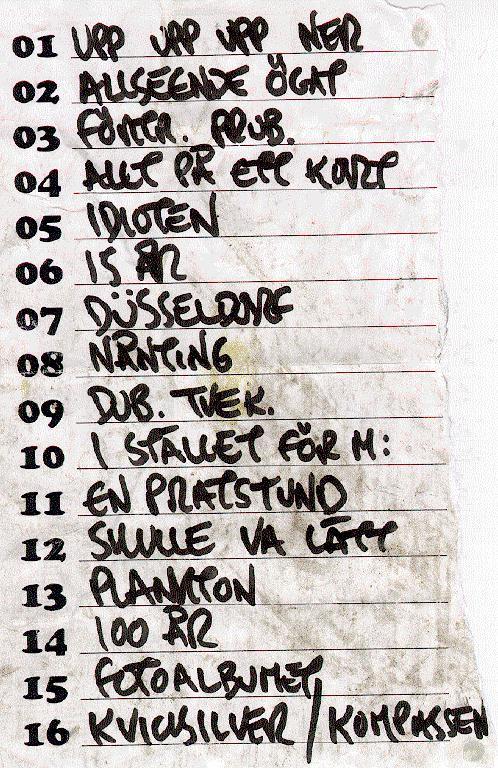 01 UPP UPP UPP NER
02 ALLSEENDE ÖGAT
03 FÖRTR. PRUB.
04 ALLT PÅ ETT KORT
05 IDIOTEN
06 15 ÅR
07 DÜSSELDORF
08 NÅNTING
09 DUB. TVEK.
10 I STÄLLET FÖR M:
11 EN PRATSTUND
12 SKULLE VA LÄTT
13 PLANKTON
14 100 ÅR
15 FOTOALBUMET
16 KVICKSILVER / KOMPASSEN